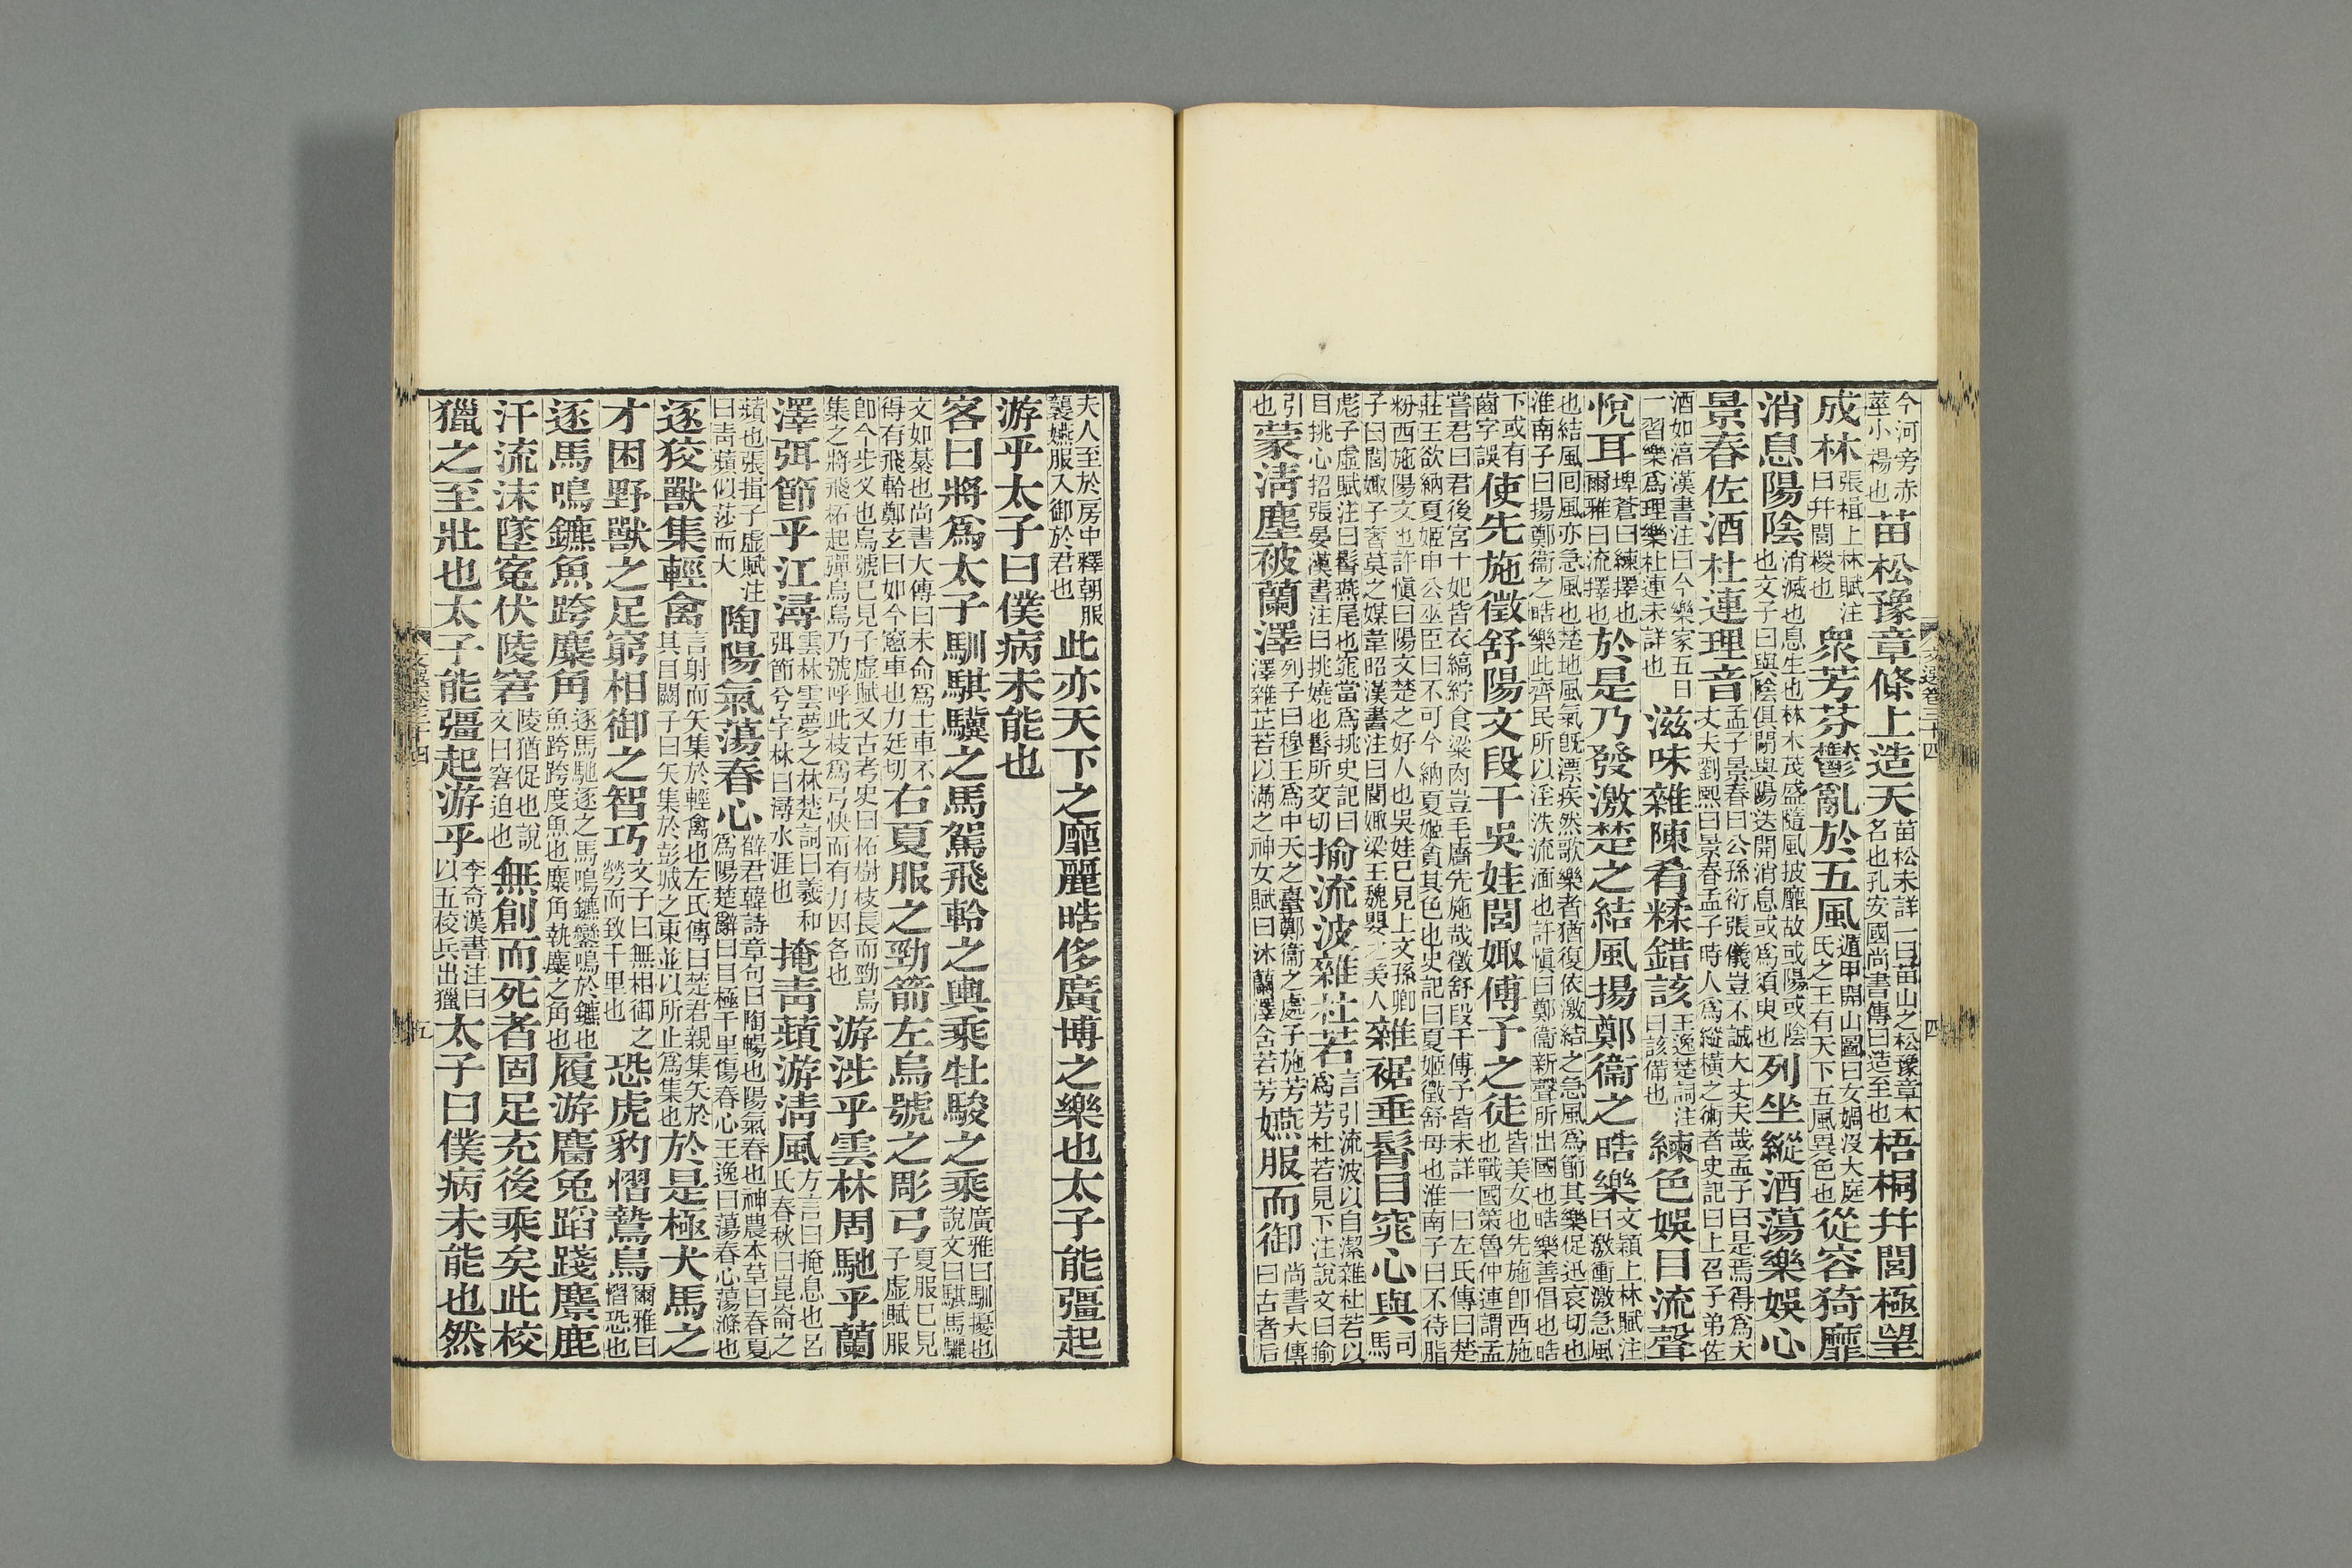 今河旁赤莖小楊也苗松豫章條上造天苗松未詳一曰苗山之松豫章木名也孔安國尚書傳曰造至也梧桐并閭極望
成林張楫上林賦注曰并閭椶也眾芳芬鬱亂於五風遁甲開山圖曰女媧沒大庭氏之王有天下五風異色也從容猗靡
消息陽陰消滅也息生也林木茂盛隨風披靡故或陽或陰也文子曰與陰俱閉與陽迭開消息或為須臾也列坐縱酒蕩樂娛心
景春佐酒杜連理音孟子景春曰公孫衍張儀豈不誠大丈夫哉孟子曰是焉得為大丈夫劉熙曰景春孟子時人為縱橫之術者史記曰上召子弟佐
酒如湻漢書注曰今樂家五日一習樂為理樂杜連未詳也滋味雜陳肴糅錯該王逸楚詞注曰該備也練色娛目流聲
悅耳埤蒼曰練擇也爾雅曰流擇也於是乃發激楚之結風揚鄭衞之皓樂文穎上林賦注曰激衝激急風
也結風囘風亦急風也楚地風氣旣漂疾然歌樂者猶復依激結之急風為節其樂促迅哀切也淮南子曰揚鄭衞之皓樂此齊民所以淫泆流湎也許愼曰鄭衞新聲所出國也皓樂善倡也皓
下或有齒字誤使先施徵舒陽文段干吳娃閭娵傅予之徒皆美女也先施卽西施也戰國策魯仲連謂孟
嘗君曰君後宮十妃皆衣縞紵食粱肉豈毛廧先施哉徵舒段干傅予皆未詳一曰左氏傳曰楚莊王欲納夏姬申公巫臣曰不可今納夏姬貪其色也史記曰夏姬徵舒母也淮南子曰不待脂
粉西施陽文也許愼曰陽文楚之好人也吳娃已見上文孫卿子曰閭娵子奢莫之媒韋昭漢書注曰閭娵梁王魏嬰之美人雜裾垂髾目窕心與司馬
彪子虛賦注曰髾燕尾也窕當為挑史記曰目挑心招張晏漢書注曰挑嬈也髾所交切揄流波雜杜若言引流波以自潔雜杜若以為芳杜若見下注說文曰揄
引也蒙淸塵被蘭澤列子曰穆王為中天之臺鄭衞之處子施芳澤雜芷若以滿之神女賦曰沐蘭澤含若芳嬿服而御尚書大傳曰古者后
夫人至於房中釋朝服襲嬿服入御於君也此亦天下之靡麗皓侈廣博之樂也太子能彊起
游乎太子曰僕病未能也
客曰將為太子馴騏驥之馬駕飛軨之輿乘牡駿之乘廣雅曰馴擾也說文曰騏馬驪
文如綦也尚書大傳曰未命為士車不得有飛軨鄭玄曰如今窻車也力廷切右夏服之勁箭左烏號之彫弓夏服已見子虛賦服
卽今步叉也烏號已見子虛賦又古考史曰柘樹枝長而勁烏集之將飛柘起彈烏烏乃號呼此枝為弓快而有力因名也游涉乎雲林周馳乎蘭
澤弭節乎江潯雲林雲夢之林楚詞曰羲和弭節兮字林曰潯水涯也掩靑蘋游淸風方言曰掩息也呂氏春秋曰崑崙之
蘋也張揖子虛賦注曰靑蘋似莎而大陶陽氣蕩春心薛君韓詩章句曰陶暢也陽氣春也神農本草曰春夏為陽楚辭曰目極千里傷春心王逸曰蕩春心蕩滌也
逐狡獸集輕禽言射而矢集於輕禽也左氏傳曰楚君親集矢於其目闕子曰矢集於彭城之東並以所止為集也於是極犬馬之
才困野獸之足窮相御之智巧文子曰無相御之勞而致千里也恐虎豹慴鷙鳥爾雅曰慴恐也
逐馬鳴鑣魚跨麋角逐馬馳逐之馬鳴鑣鸞鳴於鑣也魚跨跨度魚也麋角執麋之角也履游麕兔蹈踐麖鹿
汗流沫墜寃伏陵窘陵猶促也說文曰窘迫也無創而死者固足充後乘矣此校
獵之至壯也太子能彊起游乎李奇漢書注曰以五校兵出獵太子曰僕病未能也然
文選卷三十四
四
文選卷三十四
五